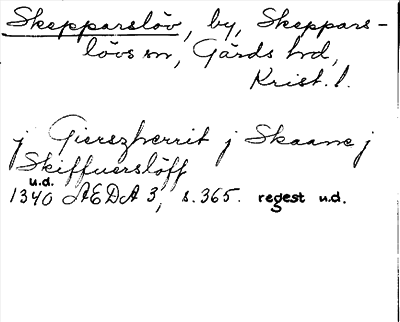 Skepparslöv, by, Skeppars-
lövs sn, Gärds hd,
Krist. l.
j Gierszherrit j Skaane j
Skiffuerslöff
u.d.
1340 ÆDA 3, s. 365. regest u.d.